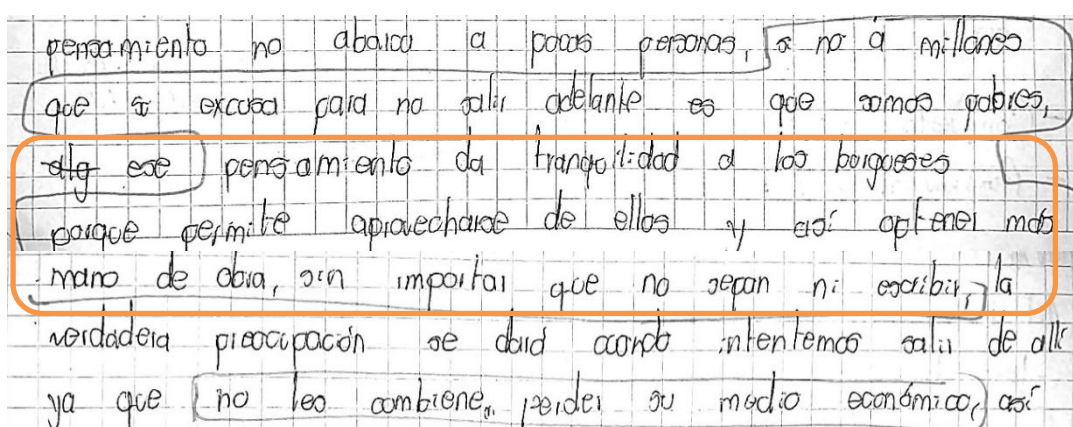 pensamiento no abarca a pocas personas, si no a millones
que su excusa para no salir adelante es que somos pobres,
ese pensamiento da tranquilidad a los borgueses
porque permite aprovecharse de ellos y así optener más
mano de obra, sin importar que no sepan ni escribir, la
verdadera preocupación se dará cuando intentemos salir de allí
ya que no les combiene, perder su medio económico, así